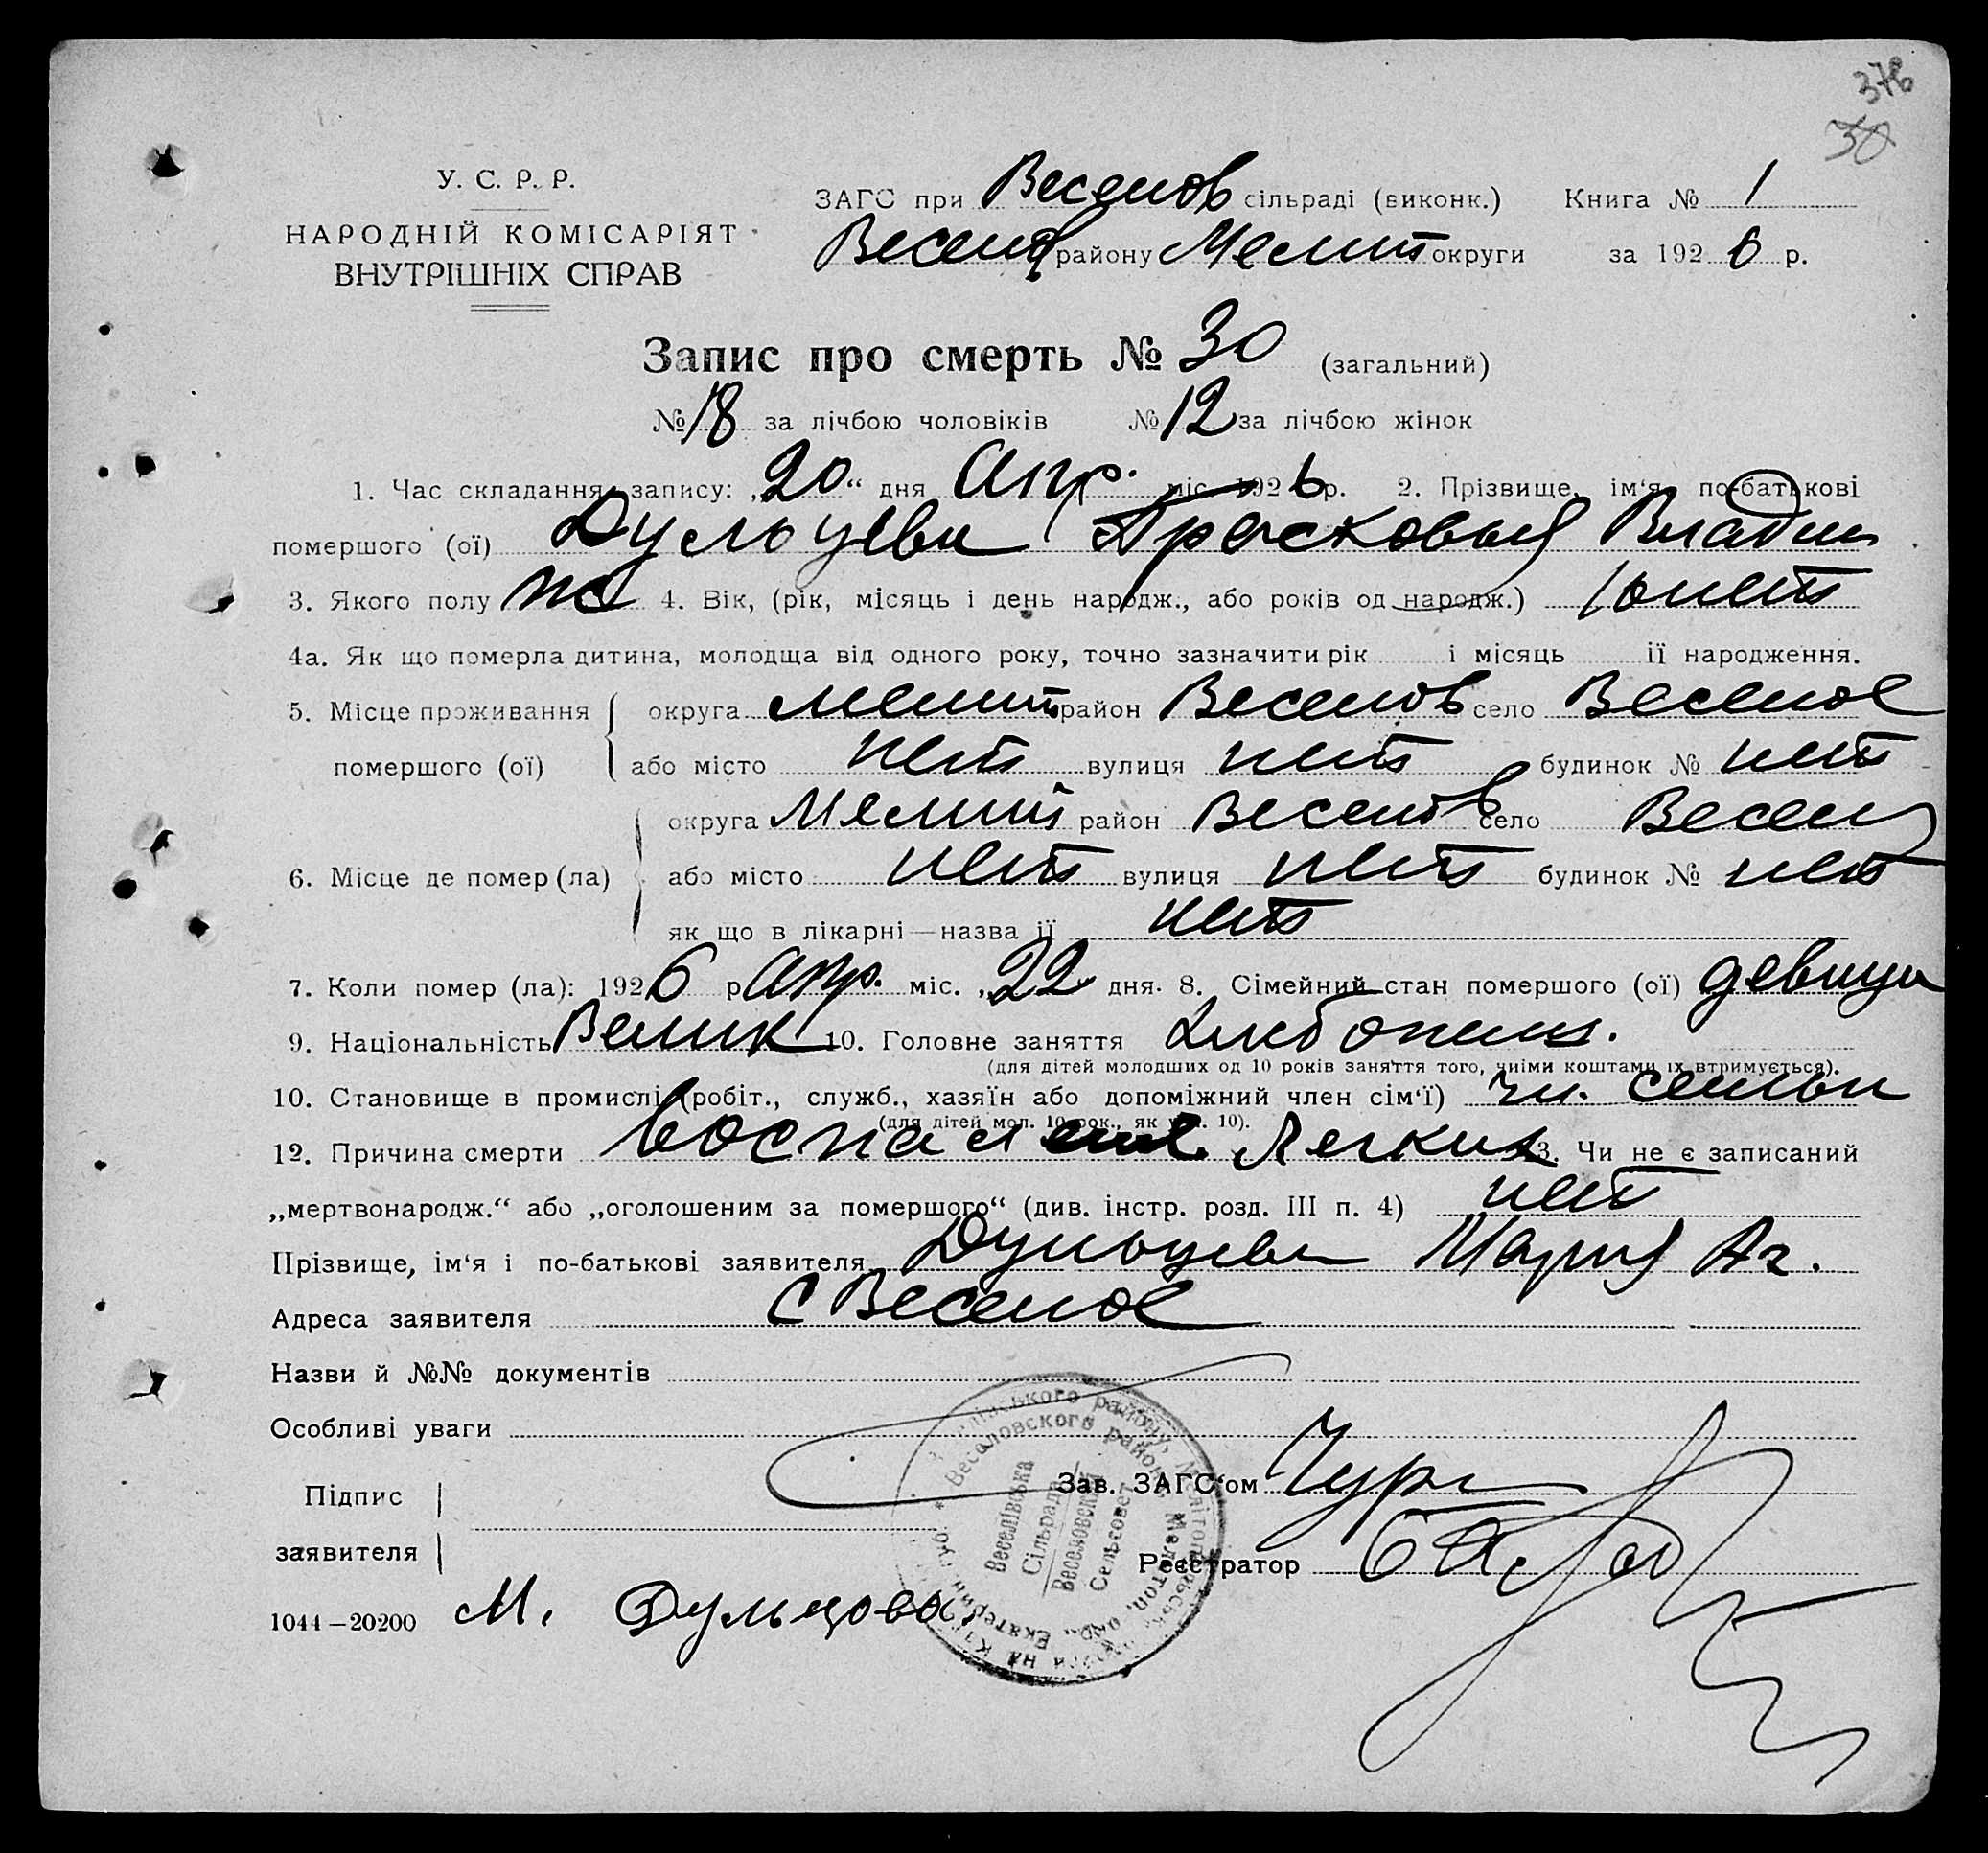 376
30
У. С. Р. Р.
НАРОДНІЙ КОМІСАРІЯТ
ВНУТРІШНІХ СПРАВ
ЗАГС при Веселов сільраді (виконк.) Книга № 1
Весел району Мелит округи за 1926 р.
Запис про смерть № 30 (загальний)
№ 18 за лічбою чоловіків № 12 за лічбою жінок
1. Час складання запису: „20“ дня Апр. міс. 1926 р. 2. Прізвище, ім‘я, по-батькові
помершого (ої) Дульцева Прасковья Влад
3. Якого полу 4. Вік, (рік, місяць і день народж., або років од народж.) 10 лет
4а. Як що померла дитина, молодща від одного року, точно зазначити рік і місяць її народження.
5. Місце проживання округа Мелит район Веселов село Веселое
помершого (ої) або місто нет вулиця нет будинок № нет
округа Мелит район Веселов село Весел
6. Місце де помер (ла) або місто нет вулиця нет будинок № нет
як що в лікарні—назва її нет
7. Коли помер (ла): 1926 р Апр. міс. „22 дня. 8. Сімейний стан помершого (ої) девица
9. Національність Велик 10. Головне заняття Хлебопаш.
(для дітей молодших од 10 років заняття того, чиїми коштами їх втримується).
10. Становище в промислі (робіт., служб., хазяїн або допоміжний член сім‘ї) чл. семьи
(для дітей мол. 10 рок., як у п. 10).
12. Причина смерти воспаление Легких 13. Чи не є записаний
„мертвонародж.“ або „оголошеним за помершого“ (див. інстр. розд. III п. 4) нет
Прізвище, ім‘я і по-батькові заявителя Дульцева Мария Аг.
Адреса заявителя С Веселое
Назви й №№ документів
Особливі уваги
Підпис
заявителя
Зав. ЗАГС‘ом
Реєстратор
Веселівська
Сільрада
Веселовский
Сельсовет
Веселовского района, Мелитоп. окр., Екатерин. губ.
1044—20200 М. Дульцова